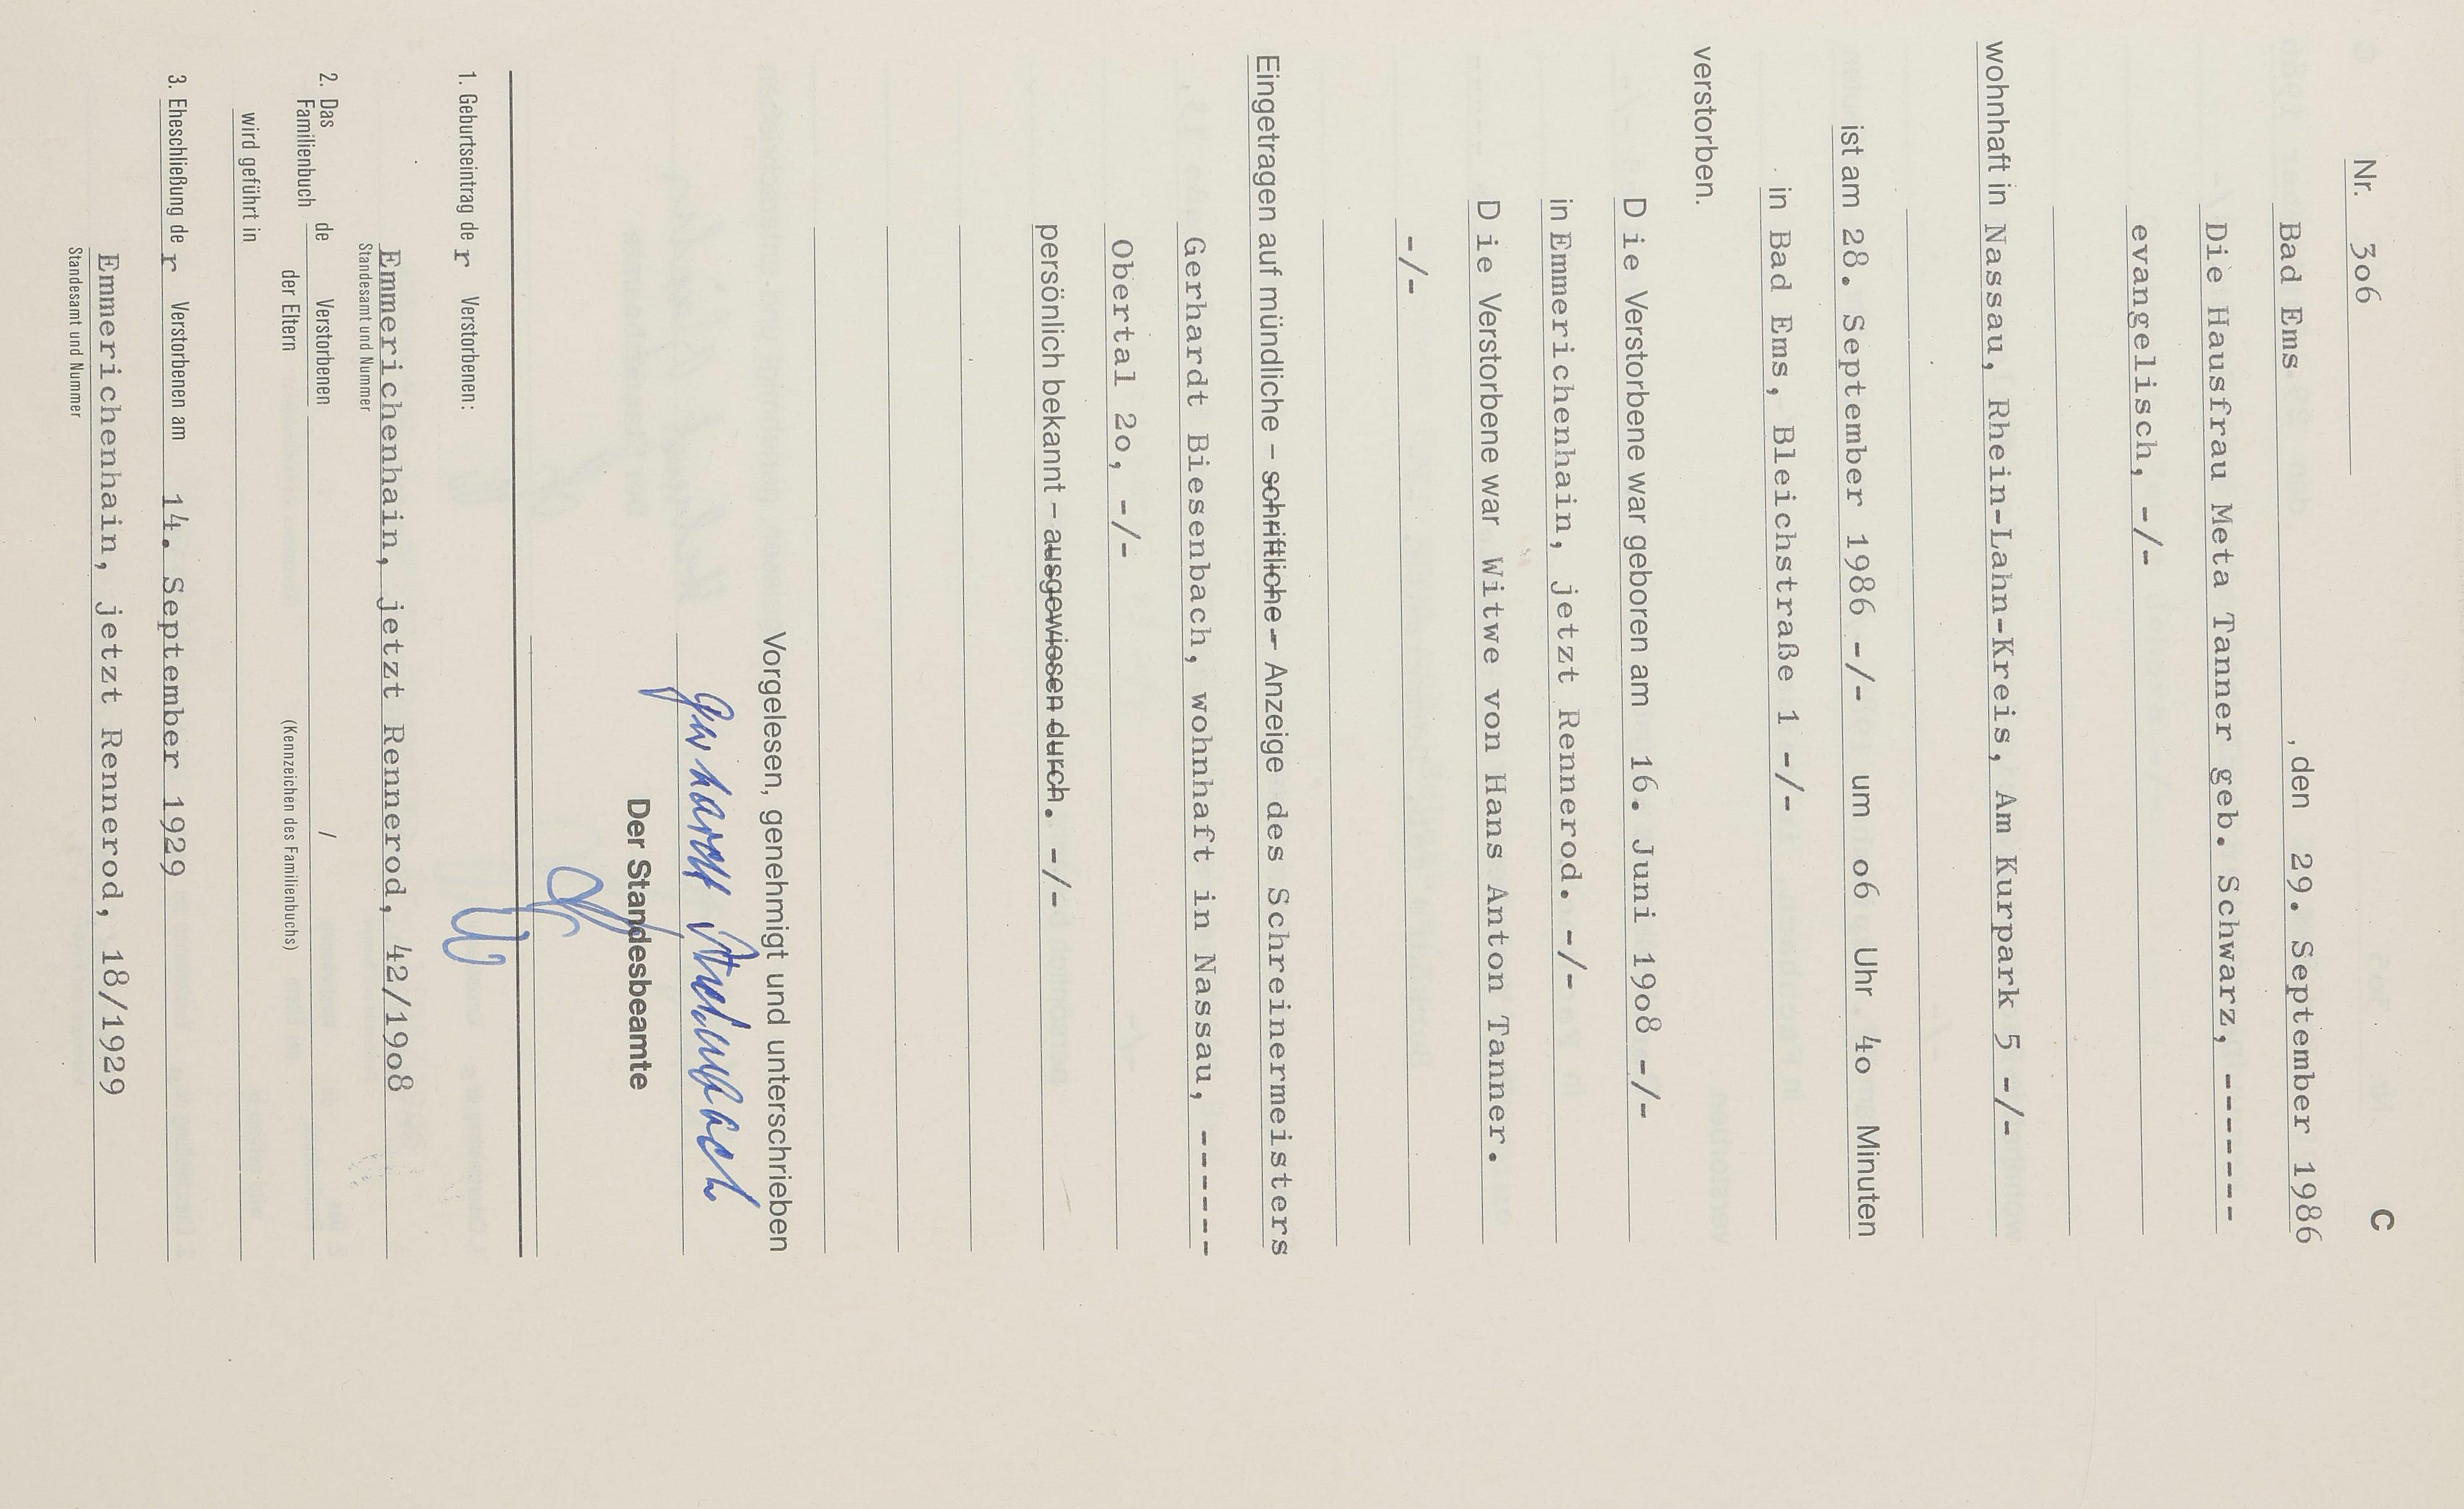 C
Nr. 3o6
Bad Ems , den 29. September 1986
Die Hausfrau Meta Tanner geb. Schwarz, -------
evangelisch, -/-
wohnhaft in Nassau, Rhein-Lahn-Kreis, Am Kurpark 5 -/-
ist am 28. September 1986 -/- um o6 Uhr 4o Minuten
in Bad Ems, Bleichstraße 1 -/-
verstorben.
D ie Verstorbene war geboren am 16. Juni 19o8 -/-
in Emmerichenhain, jetzt Rennerod. -/-
D ie Verstorbene war Witwe von Hans Anton Tanner.
-/-
Eingetragen auf mündliche – schriftliche – Anzeige des Schreinermeisters
Gerhardt Biesenbach, wohnhaft in Nassau, ------
Obertal 2o, -/-
persönlich bekannt – ausgewiesen durch. -/-
Vorgelesen, genehmigt und unterschrieben
Gerhardt Biesenbach
Der Standesbeamte
1. Geburtseintrag de r Verstorbenen:
Emmerichenhain, jetzt Rennerod, 42/19o8
Standesamt und Nummer
2. Das Familienbuch de Verstorbenen /
der Eltern (Kennzeichen des Familienbuchs)
wird geführt in
3. Eheschließung de r Verstorbenen am 14. September 1929
Emmerichenhain, jetzt Rennerod, 18/1929
Standesamt und Nummer